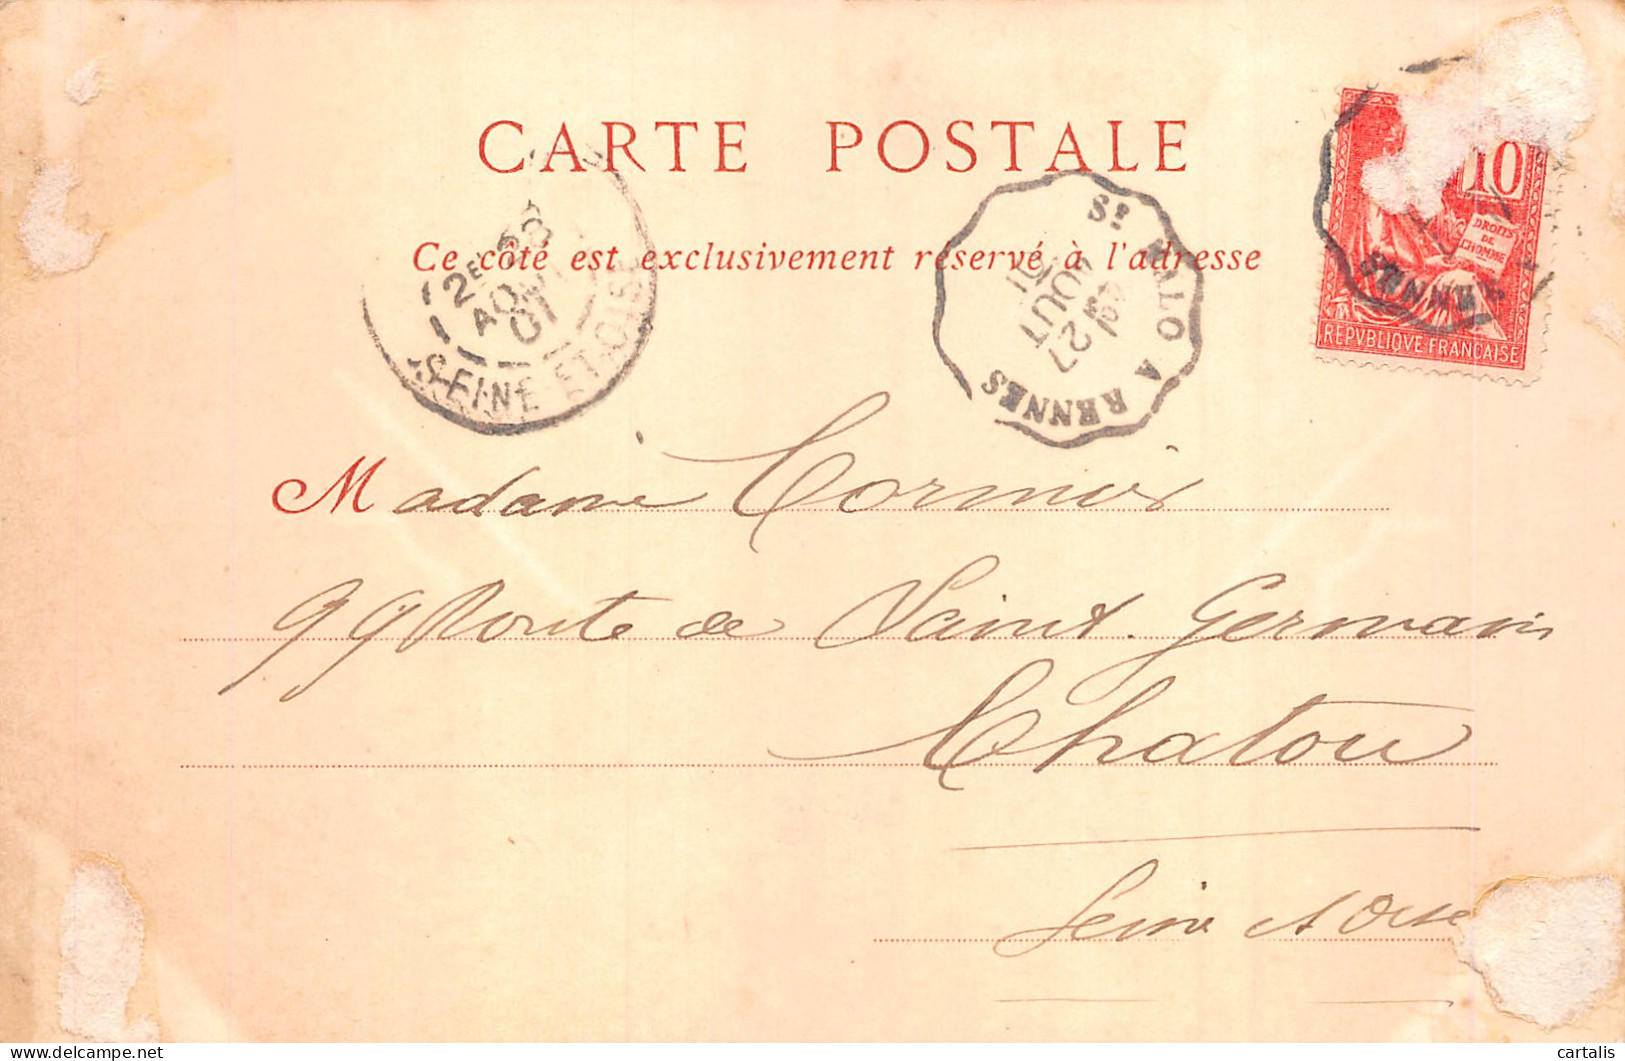 CARTE POSTALE
Ce côté est exclusivement réservé à l'adresse
10
DROITS
DE
L'HOMME
REPVBLIQVE FRANÇAISE
RENNES
2E 28
AOUT
01
SEINE-ET-OISE
St MALO A RENNES
27
AOUT
01
Madame Cormier
99 Route de Saint-Germain
Chatou
Seine et Oise
delcampe.net
cartalis